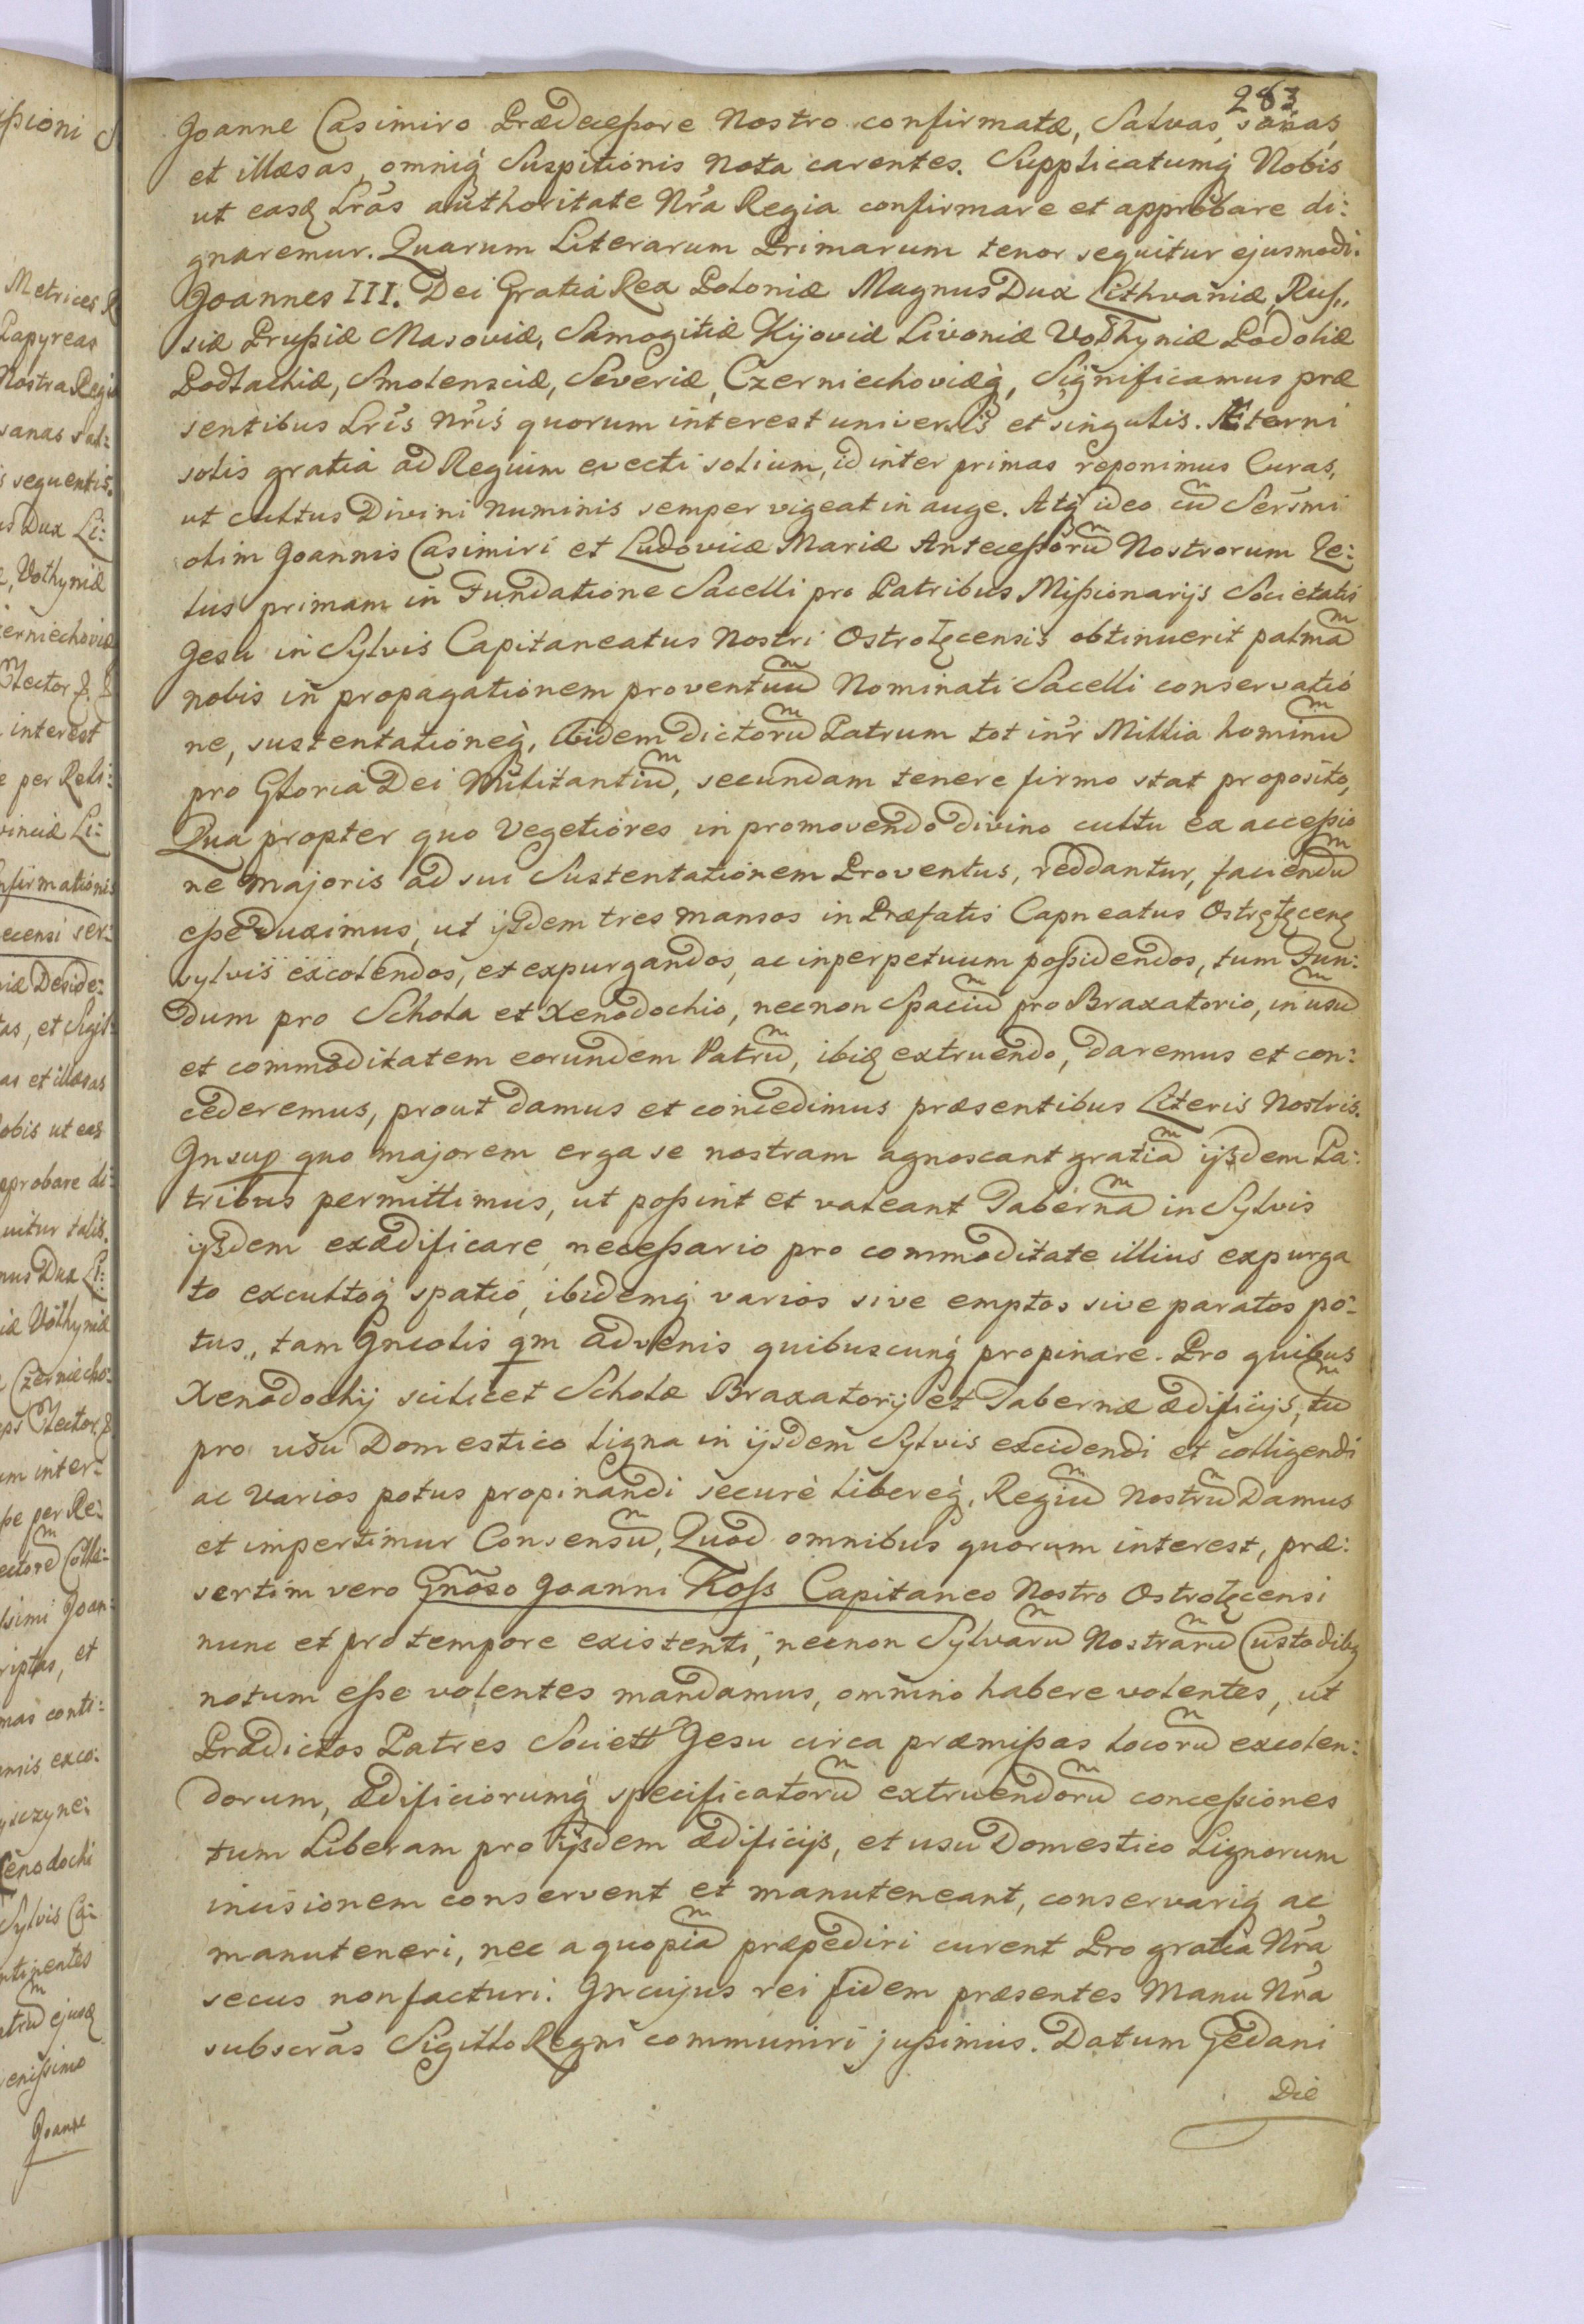 283
Joanne Casimiro Prædecessore Nostro confirmatæ, Salvas, sanas,
et illæsas, omniq́ Suspitionis Nota carentes. Supplicatumq́ Nobis
ut easq́ Lrās authoritate Nrā Regia confirmare et approbare di:
gnaremur. Quarum Literarum Primarum tenor sequitur ejusmodi.
Joannes III. Dei Gratiá Rex Poloniæ Magnus Dux Lithvaniæ, Rus,,
siæ Prussiæ Masoviæ, Samogitiæ Kijoviæ Livoniæ Volhyniæ Podoliæ
Podlachiæ, Smolensciæ, Severiæ, Czerniechoviæq́, Significamus præ
sentibus Lrīs Nrīs quorum interest universis et singulis. Æterni
solis gratiá ad Regium evecti solium, id inter primas reponimus Curas,
ut cultus Divini Numinis semper vigeat in auge. Atq́ ideo cum̄ Serm̄i
olim Joannis Casimiri et Ludovicæ Mariæ Antecessorum̄ Nostrorum Ze:
lus primam in Fundatione Sacelli pro Patribus Missionarijs Societatis
Jesu in Sylvis Capitaneatus Nostri Ostrołęcensis obtinuerit palmam̄
nobis in propagationem proventuum̄ Nominati Sacelli conservatio
ne, sustentationeq́, ibidem dictorum̄ Patrum tot inr̄ Millia hominum̄
pro Gloria Dei Militantium̄, secundam tenere firmo stat proposito,
Qua propter quo Vegetiores in promovendo divino cultu ex accessio
ne majoris ad sui Sustentationem Proventus, reddantur, faciendum̄
esse duximus, ut ijsdem tres mansos in Præfatis Capneatus Ostrołęcen
sylvis excolendos, et expurgandos, ac in perpetuum possidendos, tum Fun:
dum pro Schola et Xenodochio, necnon Spacium̄ pro Braxatorio, in usum̄
et commoditatem eorundem Patrum̄, ibiq́ extruendo, daremus et con:
cederemus, prout damus et concedimus præsentibus Literis Nostris.
Insup quo majorem erga se nostram agnoscant gratiam̄ ijsdem Pa:
tribus permittimus, ut possint et valeant Tabernam̄ in Sylvis
ijsdem exædificare, necessario pro commoditate illius expurga
to excultoq́ spatio, ibidemq́ varios sive emptos sive paratos po:
tus, tam Incolis qm advenis quibuscunq́ propinare. Pro quibus
Xenodochij scilicet Scholæ Braxatorij et Tabernæ ædificijs, tum̄
pro usu Domestico ligna in ijsdem Sylvis excidendi et colligendi
ac varios potus propinandi securè libereq́, Regium̄ Nostrum̄ Damus
et impertimur Consensum̄, Quod omnibus quorum interest, præ:
sertim vero Gnōso Joanni Koss Capitaneo Nostro Ostrołęcensi
nunc et pro tempore existenti, necnon Sylvarum̄ Nostrarum̄ Custodibq
notum esse volentes mandamus, omnino habere volentes, ut
Prædictos Patres Societt Jesu circa præmissas locorum̄ excolen:
dorum, ædificiorumq́ specificatorum̄ extruendorum̄ concessiones
tum Liberam pro ijsdem ædificijs, et usu Domestico Lignorum
incisionem conservent et manuteneant, conservariq́ ac
manuteneri, nec a quopiam̄ præpediri curent Pro gratia Nrā
secus non facturi. In cujus rei fidem præsentes Manu Nrā
subscrās Sigillo Regni communiri jussimus. Datum Gedani
Die